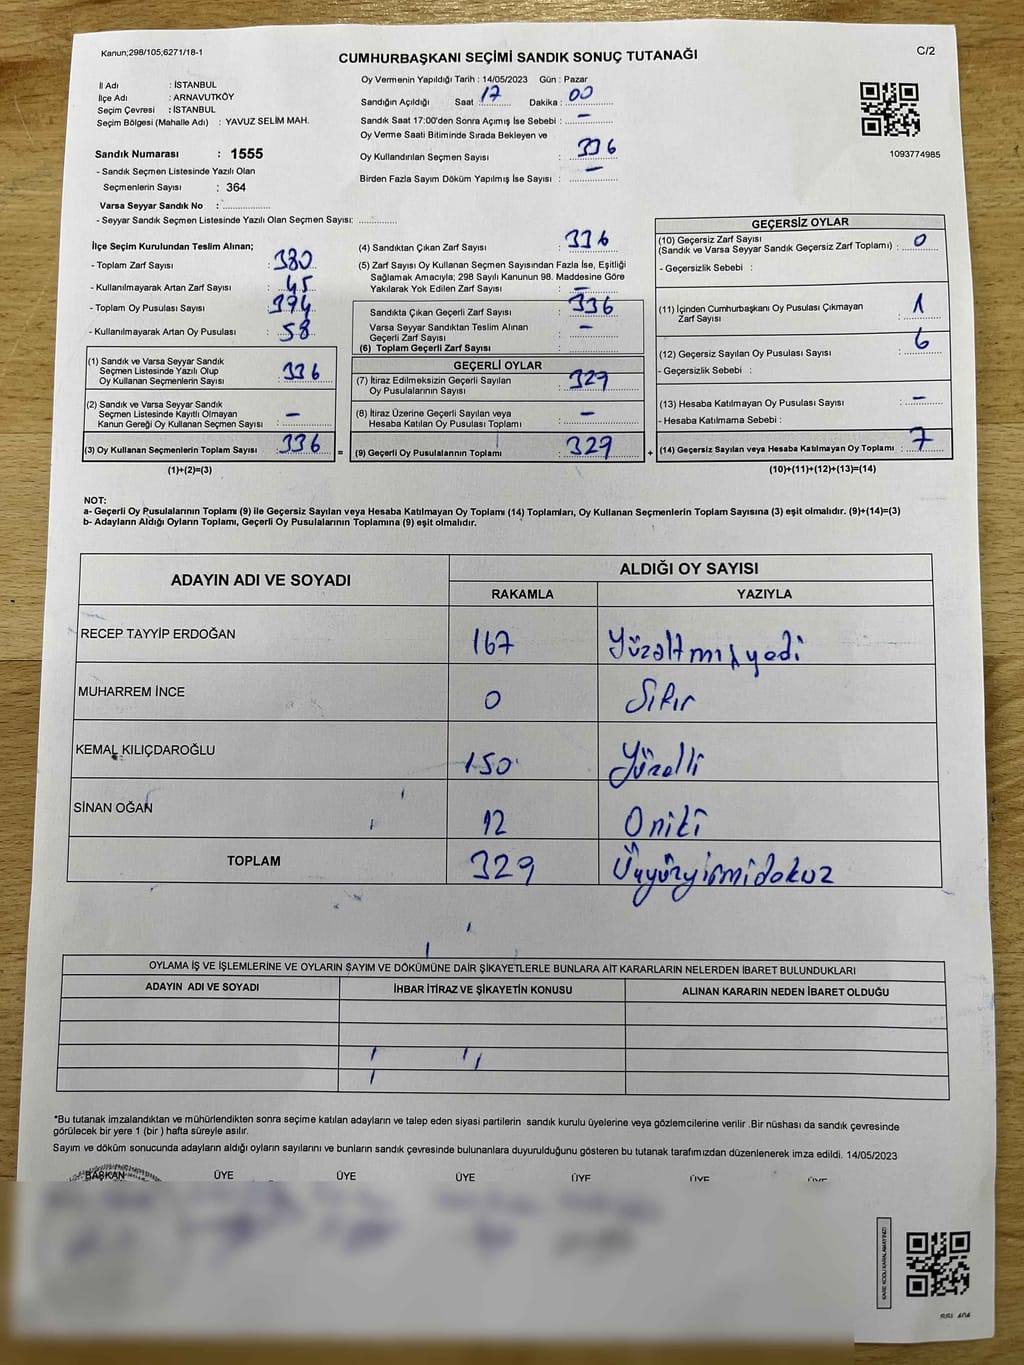 Kanun;298/105,6271/18-1
CUMHURBAŞKANI SEÇİMİ SANDIK SONUÇ TUTANAĞI
C/2
İl Adı : İSTANBUL
İlçe Adı : ARNAVUTKÖY
Seçim Çevresi : İSTANBUL
Seçim Bölgesi (Mahalle Adı) : YAVUZ SELİM MAH.
Sandık Numarası : 1555
- Sandık Seçmen Listesinde Yazılı Olan
Seçmenlerin Sayısı : 364
Varsa Seyyar Sandık No : ..............
- Seyyar Sandık Seçmen Listesinde Yazılı Olan Seçmen Sayısı: ............
Oy Vermenin Yapıldığı Tarih : 14/05/2023 Gün : Pazar
Sandığın Açıldığı Saat : 17 Dakika : 00
Sandık Saat 17:00'den Sonra Açımış İse Sebebi : –
Oy Verme Saati Bitiminde Sırada Bekleyen ve
Oy Kullandırılan Seçmen Sayısı : 336
Birden Fazla Sayım Döküm Yapılmış İse Sayısı : –
1093774985
İlçe Seçim Kurulundan Teslim Alınan;
- Toplam Zarf Sayısı : 380
- Kullanılmayarak Artan Zarf Sayısı : 45
- Toplam Oy Pusulası Sayısı : 394
- Kullanılmayarak Artan Oy Pusulası : 58
(1) Sandık ve Varsa Seyyar Sandık
Seçmen Listesinde Yazılı Olup
Oy Kullanan Seçmenlerin Sayısı : 336
(2) Sandık ve Varsa Seyyar Sandık
Seçmen Listesinde Kayıtlı Olmayan
Kanun Gereği Oy Kullanan Seçmen Sayısı : –
(3) Oy Kullanan Seçmenlerin Toplam Sayısı : 336 =
(1)+(2)=(3)
(4) Sandıktan Çıkan Zarf Sayısı : 336
(5) Zarf Sayısı Oy Kullanan Seçmen Sayısından Fazla İse, Eşitliği
Sağlamak Amacıyla; 298 Sayılı Kanunun 98. Maddesine Göre
Yakılarak Yok Edilen Zarf Sayısı : –
Sandıkta Çıkan Geçerli Zarf Sayısı : 336
Varsa Seyyar Sandıktan Teslim Alınan
Geçerli Zarf Sayısı : –
(6) Toplam Geçerli Zarf Sayısı :
GEÇERLİ OYLAR
(7) İtiraz Edilmeksizin Geçerli Sayılan
Oy Pusulalarının Sayısı : 329
(8) İtiraz Üzerine Geçerli Sayılan veya
Hesaba Katılan Oy Pusulaları Toplamı : –
(9) Geçerli Oy Pusulalarının Toplamı : 329 +
GEÇERSİZ OYLAR
(10) Geçersiz Zarf Sayısı
(Sandık ve Varsa Seyyar Sandık Geçersiz Zarf Toplamı) : 0
- Geçersizlik Sebebi :
(11) İçinden Cumhurbaşkanı Oy Pusulası Çıkmayan
Zarf Sayısı : 1
(12) Geçersiz Sayılan Oy Pusulası Sayısı : 6
- Geçersizlik Sebebi :
(13) Hesaba Katılmayan Oy Pusulası Sayısı : –
- Hesaba Katılmama Sebebi :
(14) Geçersiz Sayılan veya Hesaba Katılmayan Oy Toplamı : 7
(10)+(11)+(12)+(13)=(14)
NOT:
a- Geçerli Oy Pusulalarının Toplamı (9) ile Geçersiz Sayılan veya Hesaba Katılmayan Oy Toplamı (14) Toplamları, Oy Kullanan Seçmenlerin Toplam Sayısına (3) eşit olmalıdır. (9)+(14)=(3)
b- Adayların Aldığı Oyların Toplamı, Geçerli Oy Pusulalarının Toplamına (9) eşit olmalıdır.
ADAYIN ADI VE SOYADI ALDIĞI OY SAYISI
RAKAMLA YAZIYLA
RECEP TAYYİP ERDOĞAN 167 Yüzaltmışyedi
MUHARREM İNCE 0 Sıfır
KEMAL KILIÇDAROĞLU 150 Yüzelli
SİNAN OĞAN 12 Oniki
TOPLAM 329 Üçyüzyirmidokuz
OYLAMA İŞ VE İŞLEMLERİNE VE OYLARIN SAYIM VE DÖKÜMÜNE DAİR ŞİKAYETLERLE BUNLARA AİT KARARLARIN NELERDEN İBARET BULUNDUKLARI
ADAYIN ADI VE SOYADI İHBAR İTİRAZ VE ŞİKAYETİN KONUSU ALINAN KARARIN NEDEN İBARET OLDUĞU
*Bu tutanak imzalandıktan ve mühürlendikten sonra seçime katılan adayların ve talep eden siyasi partilerin sandık kurulu üyelerine veya gözlemcilerine verilir .Bir nüshası da sandık çevresinde
görülecek bir yere 1 (bir ) hafta süreyle asılır.
Sayım ve döküm sonucunda adayların aldığı oyların sayılarını ve bunların sandık çevresinde bulunanlara duyurulduğunu gösteren bu tutanak tarafımızdan düzenlenerek imza edildi. 14/05/2023
BAŞKAN ÜYE ÜYE ÜYE ÜYE ÜYE ÜYE
KARE KODU KARALAMAYINIZ!